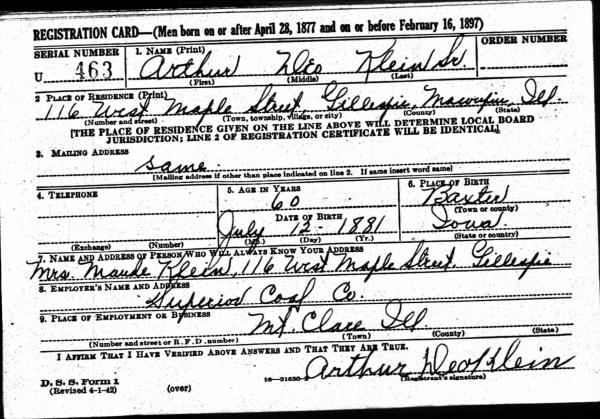 REGISTRATION CARD—(Men born on or after April 28, 1877 and on or before February 16, 1897)
SERIAL NUMBER 1. NAME (Print) ORDER NUMBER
U 463 Arthur Deo Klein Sr.
(First) (Middle) (Last)
2 PLACE OF RESIDENCE (Print)
116 West Maple Street, Gillespie, Macoupin, Ill.
(Number and street) (Town, township, village, or city) (County) (State)
[THE PLACE OF RESIDENCE GIVEN ON THE LINE ABOVE WILL DETERMINE LOCAL BOARD
JURISDICTION; LINE 2 OF REGISTRATION CERTIFICATE WILL BE IDENTICAL]
3. MAILING ADDRESS
same
[Mailing address if other than place indicated on line 2. If same insert word same]
4. TELEPHONE 5. AGE IN YEARS 6. PLACE OF BIRTH
60 Baxter
DATE OF BIRTH (Town or county)
July 12 - 1881 Iowa
(Exchange) (Number) (Mo.) (Day) (Yr.) (State or country)
7. NAME AND ADDRESS OF PERSON WHO WILL ALWAYS KNOW YOUR ADDRESS
Mrs. Maude Klein, 116 West Maple Street, Gillespie
8. EMPLOYER'S NAME AND ADDRESS
Superior Coal Co.
9. PLACE OF EMPLOYMENT OR BUSINESS
Mt. Clare Ill
(Number and street or R. F. D. number) (Town) (County) (State)
I AFFIRM THAT I HAVE VERIFIED ABOVE ANSWERS AND THAT THEY ARE TRUE.
Arthur Deo Klein
D. S. S. Form 1 16—21630-2 (Registrant's signature)
(Revised 4-1-42) (over)